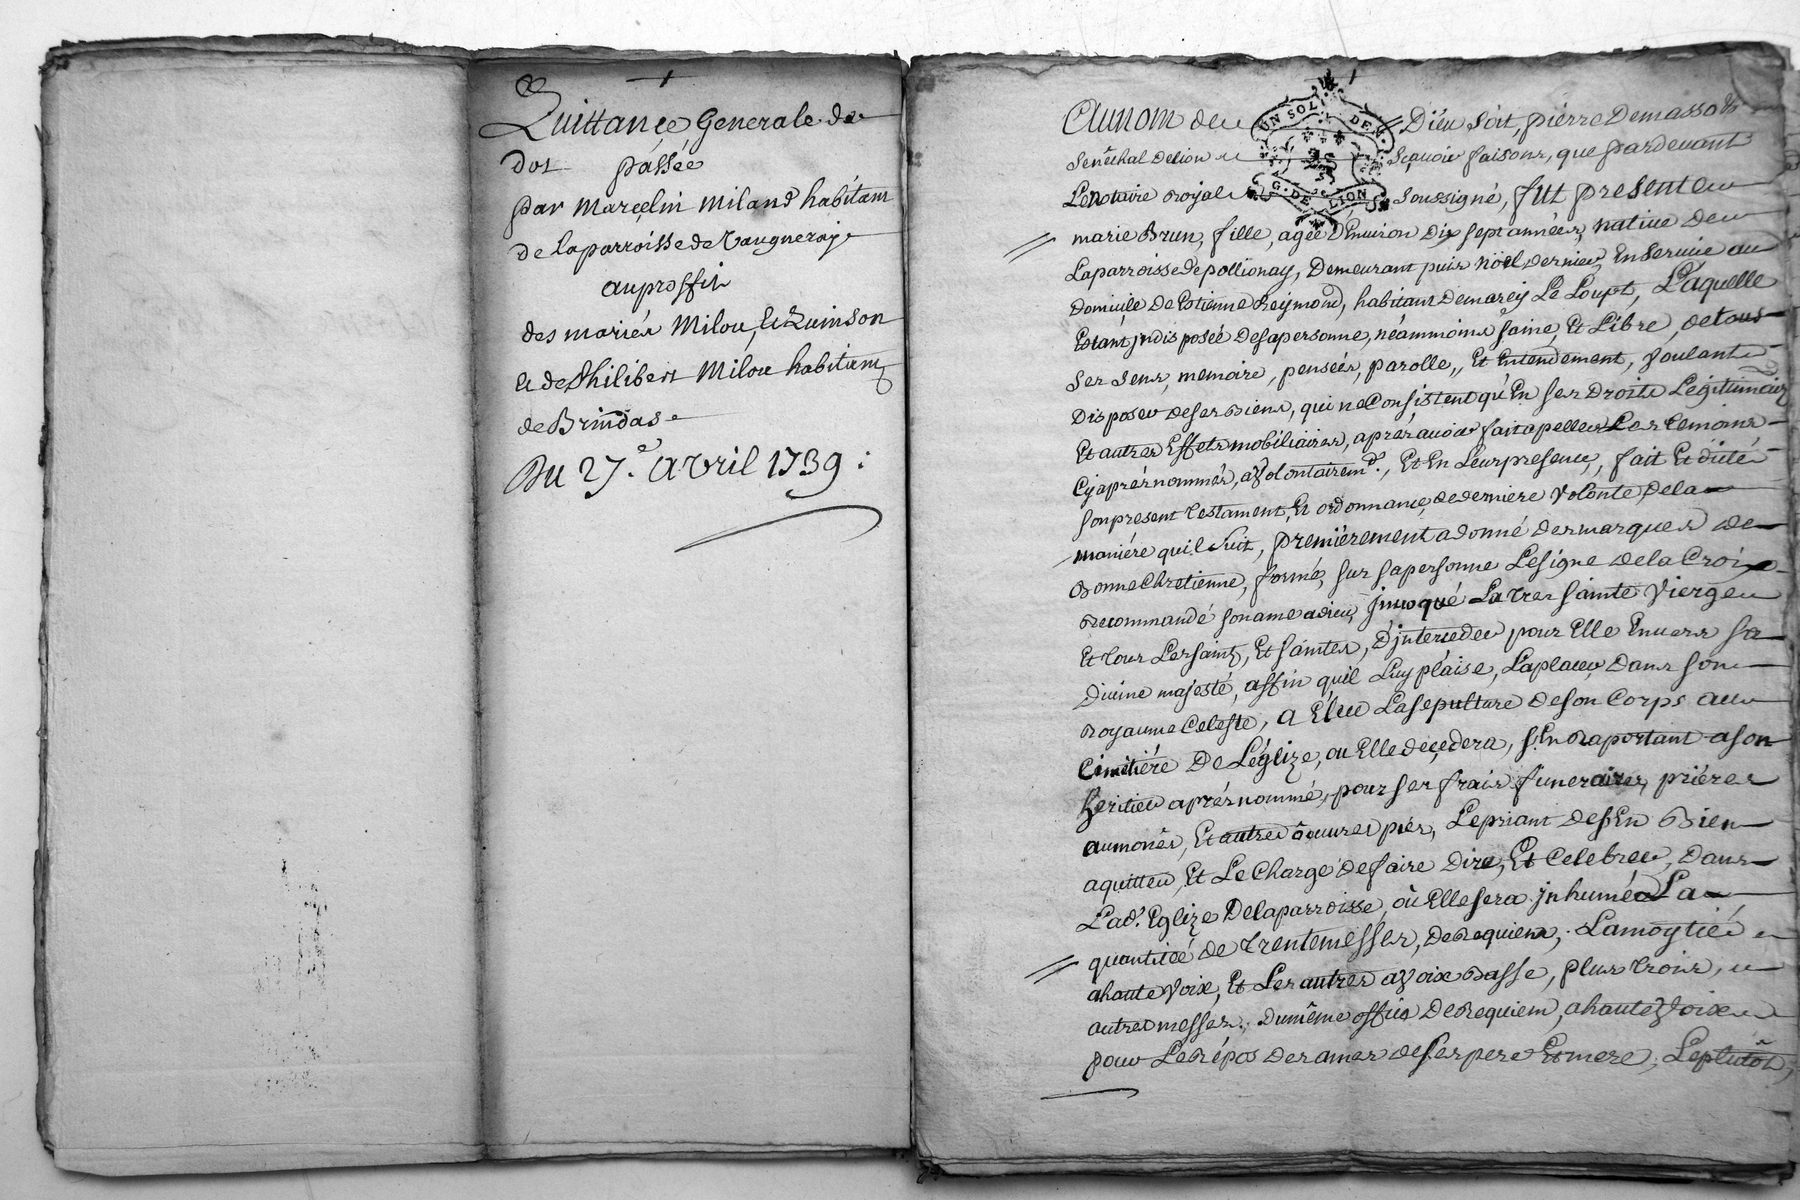 Quittançe Generale de
Dot passée
par Marçelin Miland habitant
de la parroisse de Vaugneray
au proffit
des mariés Milou, et Quinson
et de Philibert Milou habitant
de Brindas
Du 27.e avril 1739 :
UN SOL DEN
G. DE LION
Au nom de Dieu soit, pierre Demasso
senêchal de lion sçavoir faisons, que pardevant
Le notaire royal soussigné, fut presente
marie Brun, fille, agée d'Environ Dix sept années, native de
La parroisse de pollionay, Demeurant puis nöel dernier, En service au
domicile de Estienne Reymond, habitant de marcy Le Loupt, Laquelle
Estant jndisposée de sa personne, néammoins saine, Et Libre, de tous
ses sens, memoire, pensées, parolle, Et Entendement, voulant
Disposer de ses biens, qui ne Consistent qu'En ses Droits Légitimaires
Et autres Effets mobiliaires, aprés avoir fait apeller Les temoins
Cy aprés nommés, a volontairemt., Et En Leur presence, fait Et dicté
son present testament, Et ordonnançe de derniere volonté de la
maniére qu'il suit, premiérement a donné des marques de
bonne Chretienne, formé, sur sa personne Le signe de la Croix
recommandé son ame a dieu, jnvoqué La tres sainte Vierge
Et tous Les saints, Et saintes, D'jnterceder pour Elle Envers sa
Divine majesté, affin qu'il Luy pláise, La placer, Dans son
royaume Celeste, a Eleu La sepulture de son Corps au
Cimetiére De Léglize, ou Elle deçedera, s'En raportant a son
heritier aprés nommé, pour ses frais funeraires, priéres
aumônes, Et autres oeuvres pies, Le priant de s'En bien
aquitter, Et Le Charge de faire Dire, Et Celebrer, Dans
Lad. Eglize De la parroisse, où Elle sera jnhumée La
quantitée de trente messes, De requiem, La moytié
a haute voix, Et Les autres a voix basse, plus trois,
autres messes, Du même office De requiem, a haute voix
pour Le répos des ames de ses pere Et mere, Le plutôt,